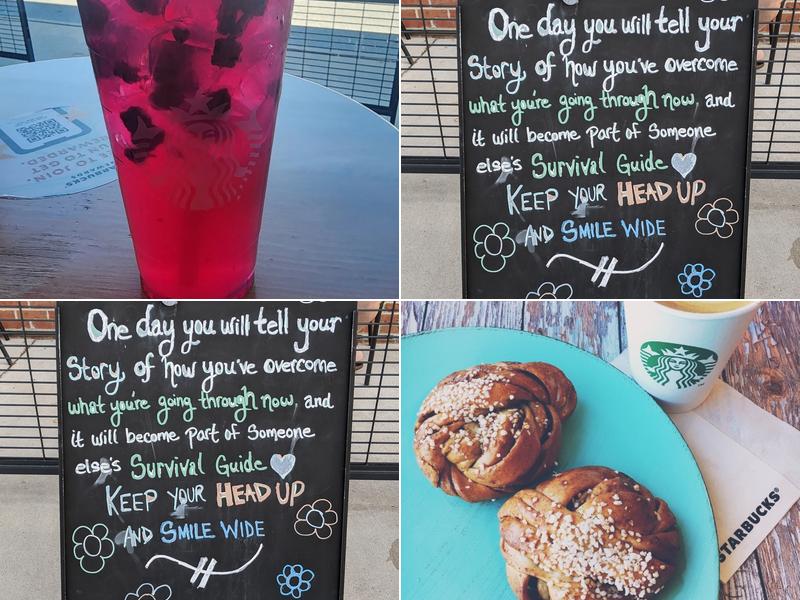 One day you will tell your
Story, of how you've overcome
what you're going through now, and
it will become part of Someone
else's Survival Guide
KEEP YOUR HEAD UP
AND SMILE WIDE
One day you will tell your
Story, of how you've overcome
what you're going through now, and
it will become part of Someone
else's Survival Guide
KEEP YOUR HEAD UP
AND SMILE WIDE
STARBUCKS®